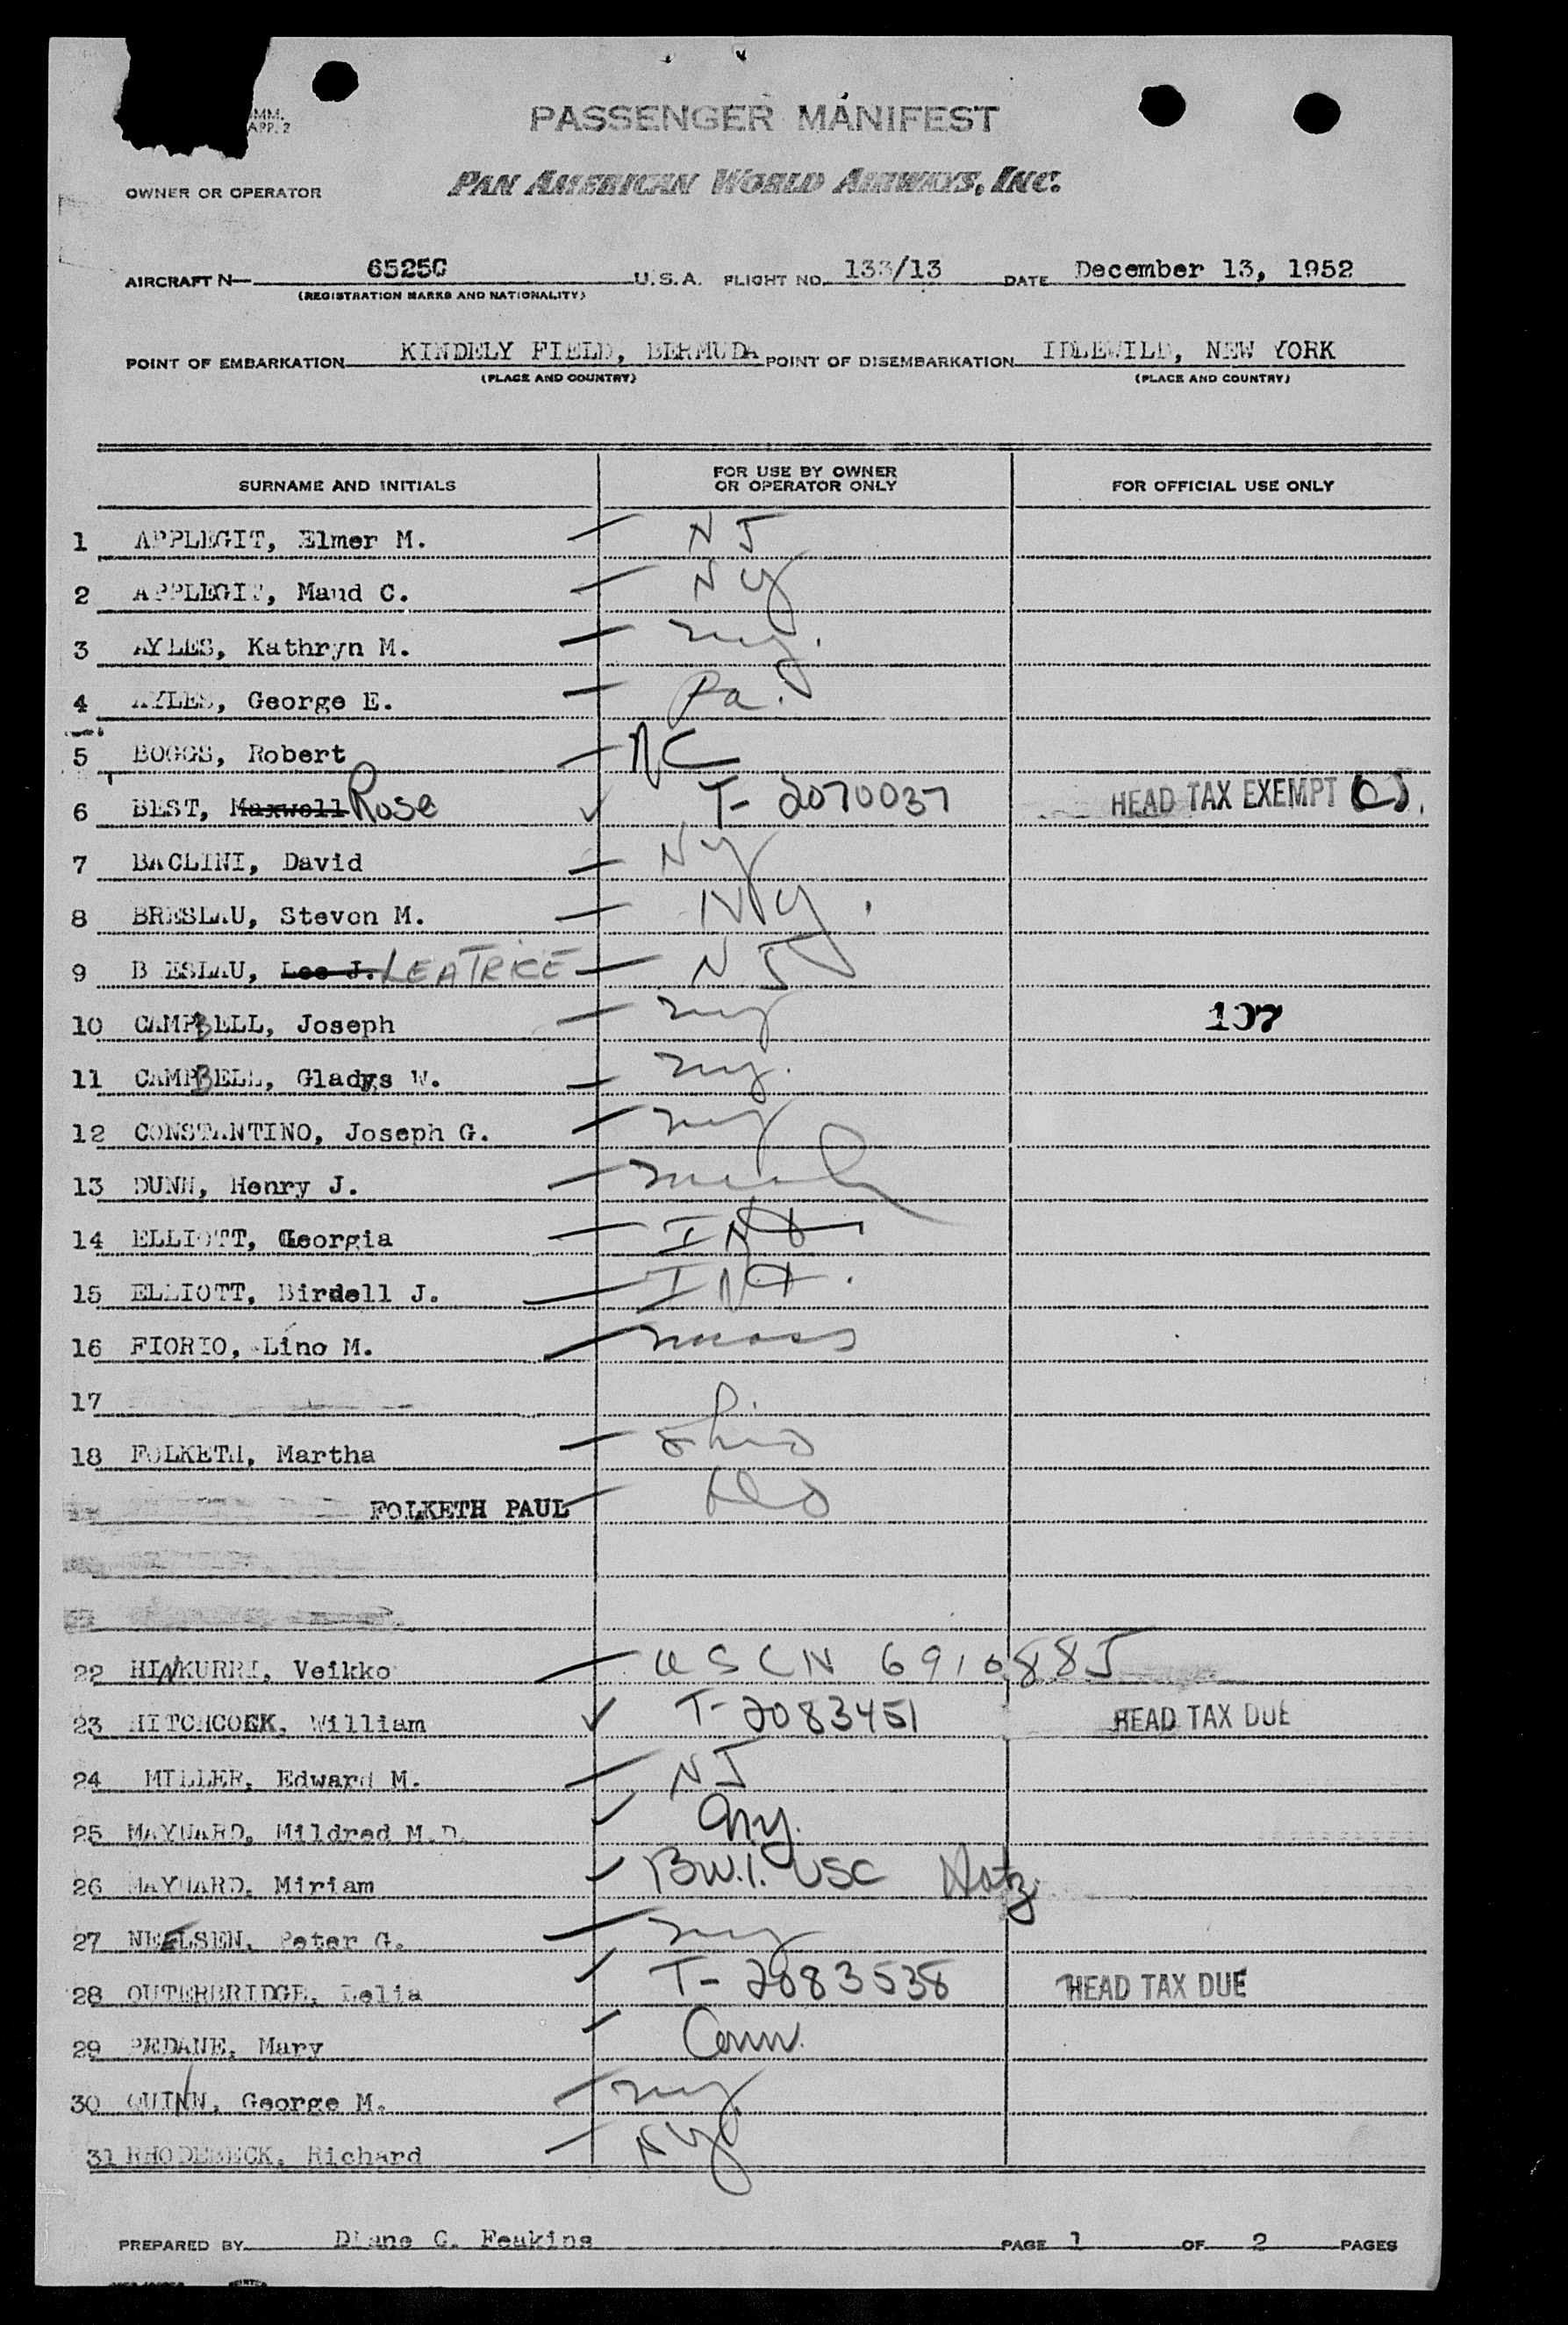 MM.
APP. 2
PASSENGER MANIFEST
OWNER OR OPERATOR PAN AMERICAN WORLD AIRWAYS, INC.
AIRCRAFT N— 6525C U.S.A. FLIGHT NO. 133/13 DATE December 13, 1952
(REGISTRATION MARKS AND NATIONALITY)
POINT OF EMBARKATION KINDELY FIELD, BERMUDA POINT OF DISEMBARKATION IDLEWILD, NEW YORK
(PLACE AND COUNTRY) (PLACE AND COUNTRY)
SURNAME AND INITIALS FOR USE BY OWNER OR OPERATOR ONLY FOR OFFICIAL USE ONLY
1 APPLEGIT, Elmer M. — NJ
2 APPLEGIT, Maud C. — NY
3 AYLES, Kathryn M. — NY.
4 AYLES, George E. — Pa.
5 BOGGS, Robert — NC
6 BEST, Maxwell Rose ✓ T- 2070037 HEAD TAX EXEMPT
7 BACLINI, David — NY
8 BRESLAU, Stevon M. — NY.
9 B ESLAU, Lee J. LEATRICE — NJ
10 CAMPBELL, Joseph — NY 107
11 CAMPBELL, Gladys W. — NY.
12 CONSTANTINO, Joseph G. — NY
13 DUNN, Henry J. —
14 ELLIOTT, Georgia — IND
15 ELLIOTT, Birdell J. — IND.
16 FIORIO, Lino M. — Mass
17
18 FOLKETH, Martha — Ohio
FOLKETH PAUL — Do
22 HINKURRI, Veikko — USCN 6910885
23 HITCHCOCK, William ✓ T- 2083451 HEAD TAX DUE
24 MILLER, Edward M. — NJ
25 MAYNARD, Mildred M.D. ✓ NY.
26 MAYNARD, Miriam ✓ B.W.I. USC Natz
27 NEELSEN, Peter G. — NY
28 OUTERBRIDGE, Delia ✓ T- 2083538 HEAD TAX DUE
29 PEDANE, Mary ✓ Conn.
30 QUINN, George M. — NY
31 RHODEBECK, Richard — NY
PREPARED BY Diane G. Feakins PAGE 1 OF 2 PAGES